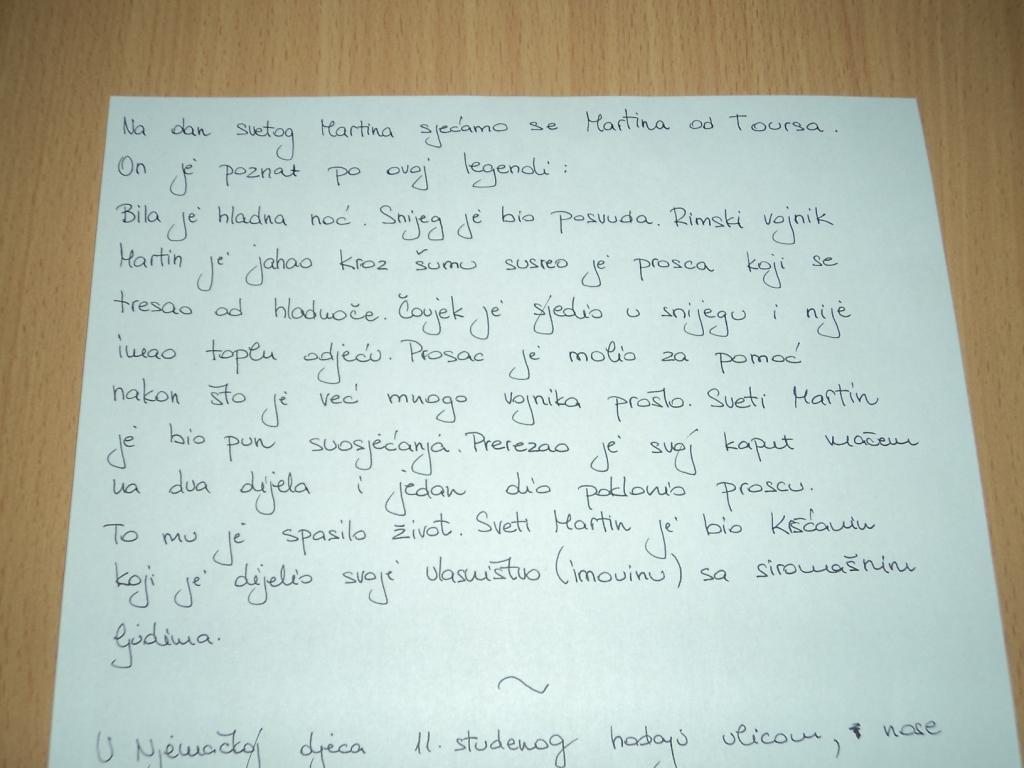 Na dan svetog Martina sjećamo se Martina od Toursa.
On je poznat po ovoj legendi:
Bila je hladna noć. Snijeg je bio posvuda. Rimski vojnik
Martin je jahao kroz šumu susreo je prosca koji se
tresao od hladnoče. Čovjek je sjedio u snijegu i nije
imao toplu odjeću. Prosac je molio za pomoć
nakon što je već mnogo vojnika prošlo. Sveti Martin
je bio pun suosjećanja. Prerezao je svoj kaput mačem
na dva dijela i jedan dio poklonio proscu.
To mu je spasilo život. Sveti Martin je bio
koji je dijelio svoje vlasništvo (imovinu) sa siromašnim
ljudima.
~
U Njemačkoj djeca 11. studenog hodaju ulicom, nose